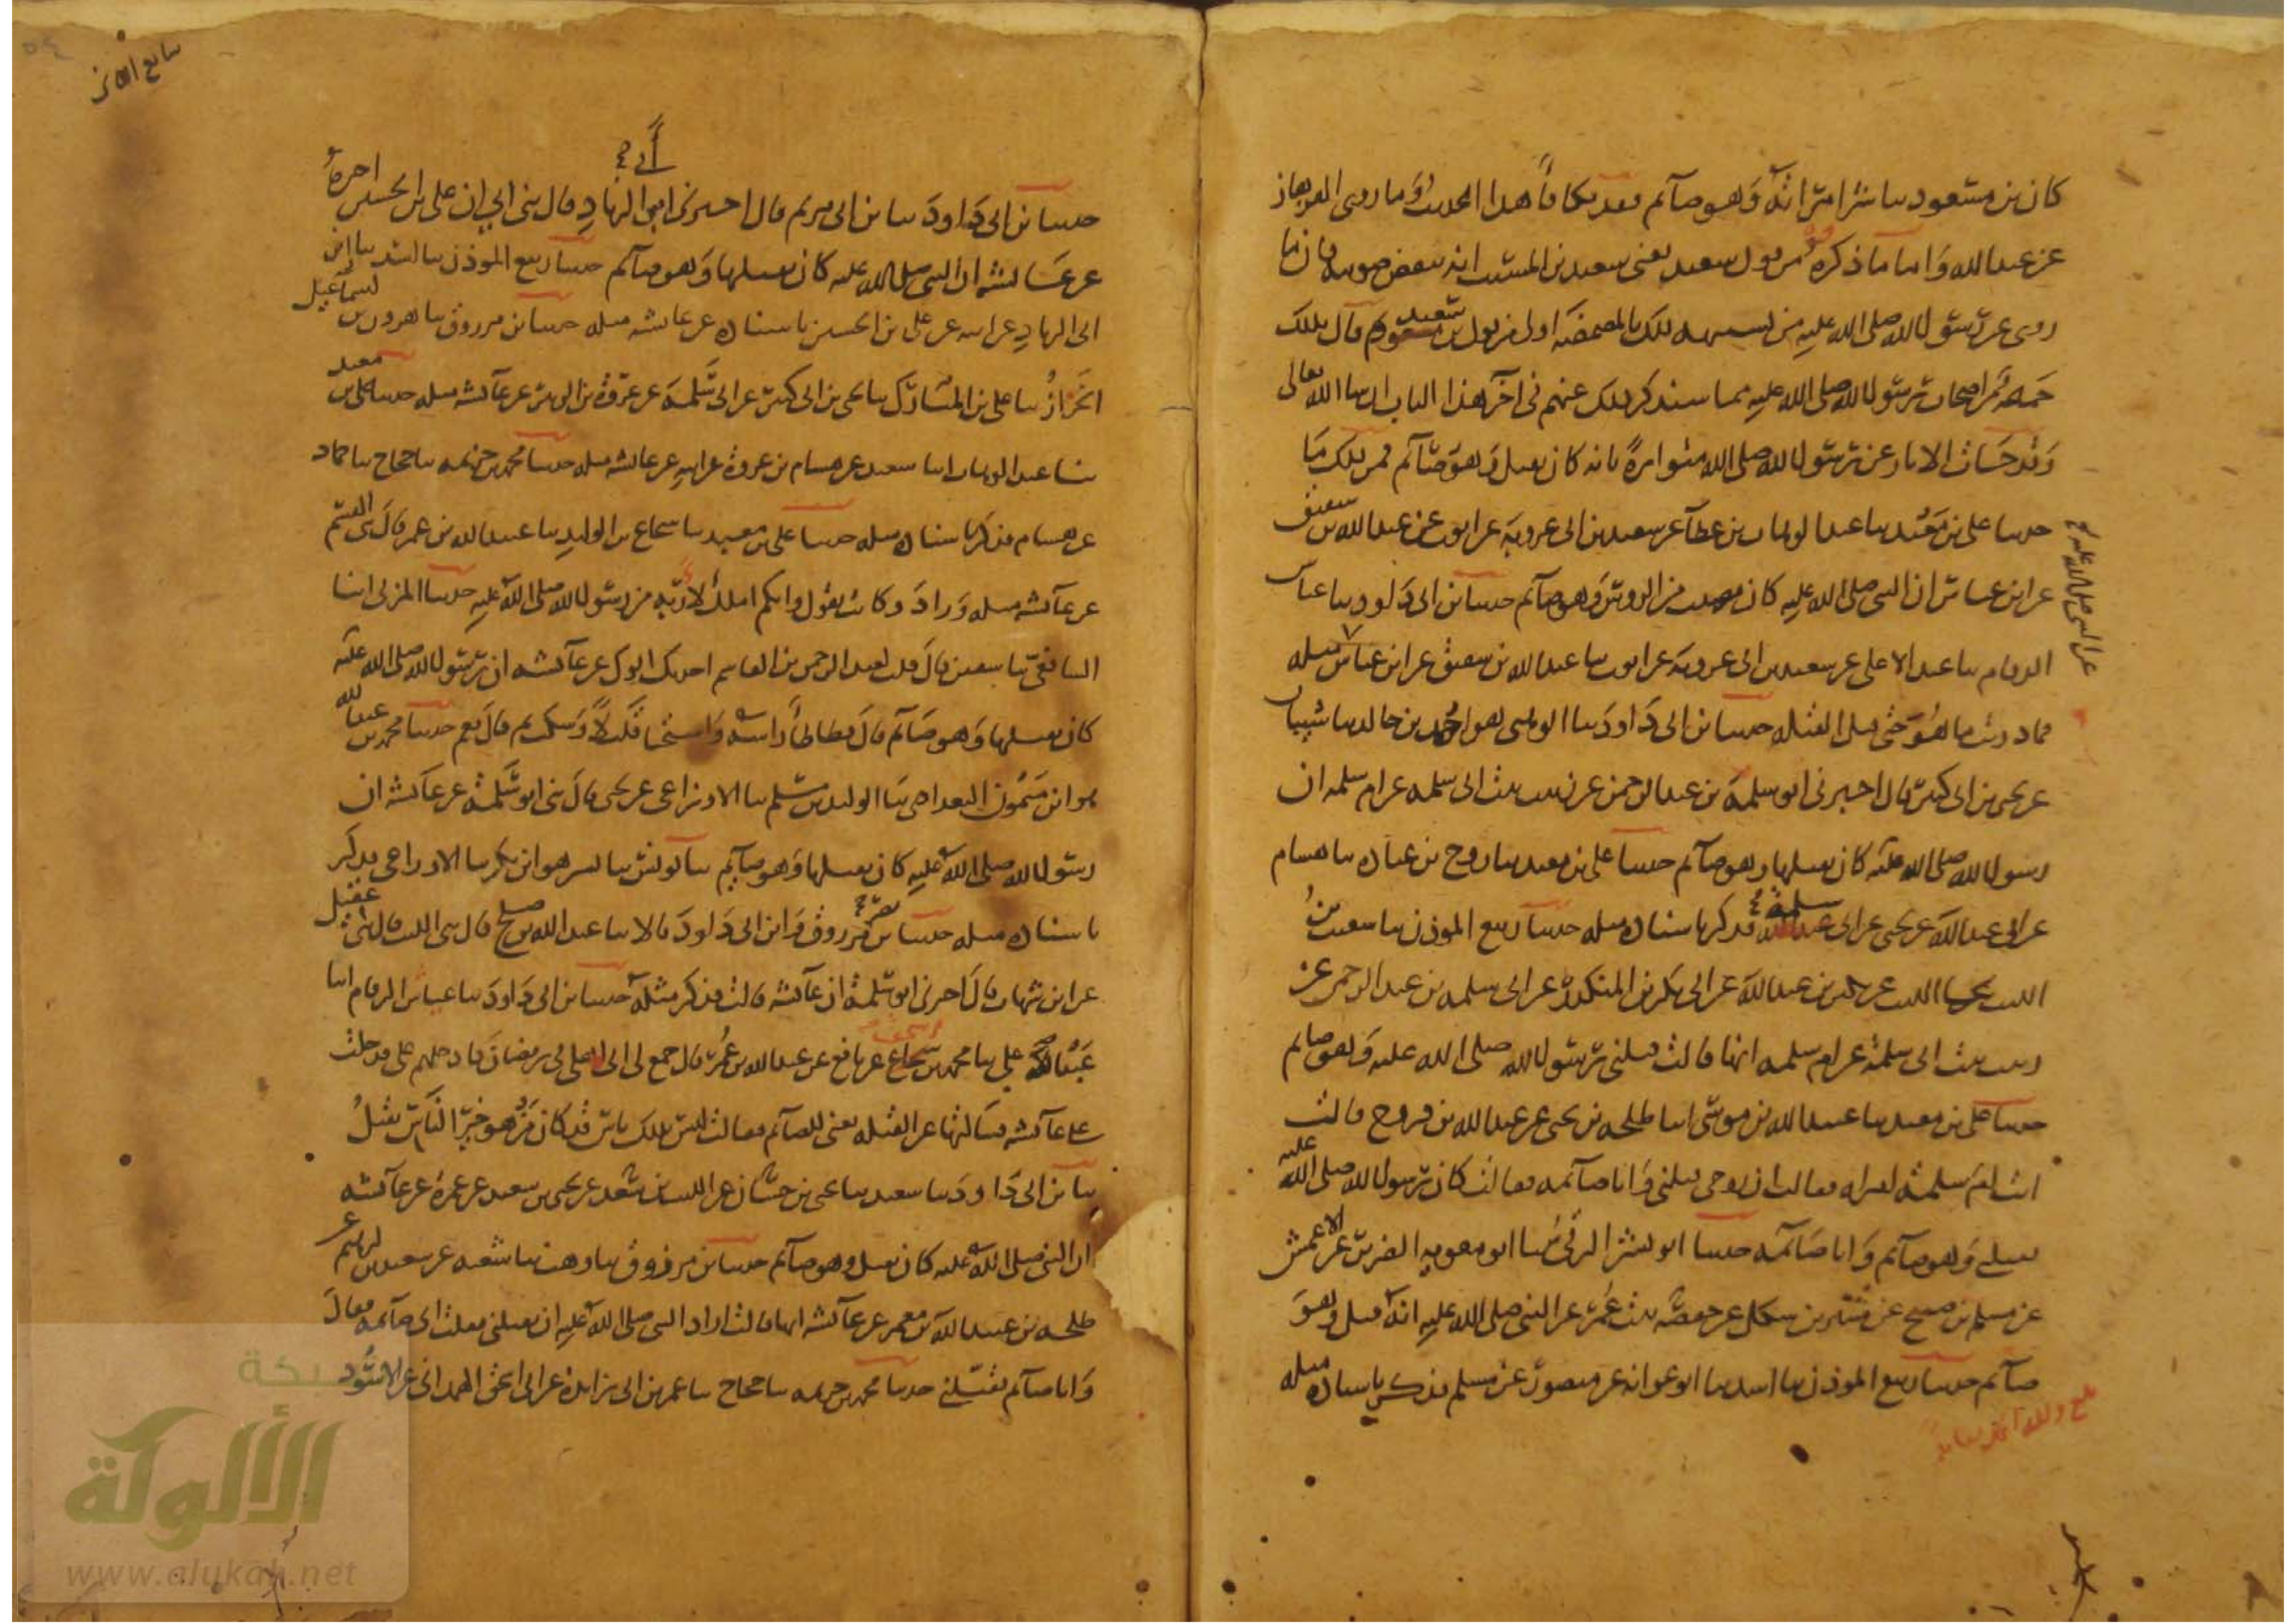 كان بن مسعود يباشر امراته وهو صآئم فقد تكافأ هذا الحديث وما روى الهزهاز
عن عبد الله واما ما ذكره من قول سعيد يعنى سعيد بن المسيب انه ينقض صومه فان ما
روى عن رسول الله صلى الله عليه من تشبيهه ذلك بالمضمضة اولى من قول بن سعيد ثم قال بذلك
جمعة من اصحاب رسول الله صلى الله عليه مما سنذكر ذلك عنهم فى آخر هذا الباب ان شا الله تعالى
وقد جات الاثار عن رسول الله صلى الله متواترة بانه كان يقبل وهو صآئم فمن ذلك ما
حدثنا على بن معبد ثنا عبد الوهاب بن عطآ عن سعيد بن ابى عروبة عن ايوب عن عبد الله بن شقيق
عن ابن عباس ان النبى صلى الله عليه كان يصيب من الروس وهو صآئم حدثنا بن ابى داود ثنا عياش
الرقام ثنا عبد الاعلى عن سعيد بن ابى عروبة عن ايوب ثنا عبد الله بن شقيق عن ابن عباس مثله
فما دريت ما هو حتى قيل القبلة حدثنا بن ابى داود ثنا الوهبى هو احمد بن خالد ثنا شيبان
عن يحيى بن ابى كثير قال اخبرنى ابو سلمة بن عبد الرحمن عن زينب بنت ابى سلمة عن ام سلمة ان
رسول الله صلى الله عليه كان يقبلها وهو صآئم حدثنا على بن معبد ثنا روح بن عبادة ثنا هشام
عن ابى عبد الله عن يحيى عن ابى سلمة فذكر باسناده مثله حدثنا ربيع الموذن ثنا شعيب بن
الليث ثنا الليث عن بكير بن عبد الله عن ابى بكر بن المنكدر عن ابى سلمة بن عبد الرحمن عن
زينب بنت ابى سلمة عن ام سلمة انها قالت قبلنى رسول الله صلى الله عليه وهو صايم
حدثنا على بن معبد ثنا عبيد الله بن موسى انبا طلحة بن يحيى عن عبد الله بن فروخ قالت
اتت ام سلمة امراة فقالت ان زوجى يقبلنى وانا صآئمة فقالت كان رسول الله صلى الله عليه
يقبلنى وهو صآئم وانا صآئمة حدثنا ابو بشر الرقى ثنا ابو معوية الضرير عن الاعمش
عن مسلم بن صبيح عن شتير بن شكل عن حفصة بنت عمر عن النبى صلى الله عليه انه قبل وهو
صآئم حدثنا ربيع الموذن ثنا اسد ثنا ابو عوانة عن منصور عن مسلم فذكر باسناده مثله
عن النبى صلى الله عليه
حدثنا بن ابى داود ثنا بن ابى مريم قال اخبرنى ابن ابى الزناد قال ثنى ابى ان على بن الحسين اخبره
عن عائشة ان النبى صلى الله عليه كان يقبلها وهو صآئم حدثنا ربيع الموذن ثنا اسد ثنا ابن
ابى الزناد عن ابيه عن على بن الحسين باسناده عن عائشة مثله حدثنا بن مرزوق ثنا هرون بن اسماعيل
الخزاز ثنا على بن المبارك ثنا يحيى بن ابى كثير عن ابى سلمة عن عروة بن الزبير عن عآئشة مثله حدثنا على بن معبد
ثنا عبد الوهاب انبا سعيد عن هشام بن عروة عن ابيه عن عائشة مثله حدثنا محمد بن خزيمة ثنا حجاج ثنا حماد
عن هشام فذكر باسناده مثله حدثنا على بن معبد ثنا شجاع بن الوليد ثنا عبيد الله بن عمر قال ثنى القسم
عن عآئشة مثله وزاد وكانت تقول وايكم املك لاربه من رسول الله صلى الله عليه حدثنا المزنى انبا
الشافعى ثنا سفين قال قلت لعبد الرحمن بن القاسم احدثك ابوك عن عآئشة ان رسول الله صلى الله عليه
كان يقبلها وهو صآئم قال فطاطأ راسه واستحيا قليلا وسكت ثم قال نعم حدثنا محمد بن عبد الله
بن ميمون البغدادى ثنا الوليد بن مسلم ثنا الاوزاعى عن يحيى قال ثنى ابو سلمة عن عآئشة ان
رسول الله صلى الله عليه كان يقبلها وهو صآيم ثنا يونس ثنا بشر هو ابن بكر ثنا الاوزاعى فذكر
باسناده مثله حدثنا نصر بن مرزوق وابن ابى داود قالا ثنا عبد الله بن صلح قال ثنى الليث قال ثنى عقيل
عن ابن شهاب قال اخبرنى ابو سلمة ان عآئشة قالت فذكر مثله حدثنا بن ابى داود ثنا عياش الرقام انبا
عبد الاعلى ثنا محمد بن اسحق عن نافع عن عبد الله بن عمر قال جمع لى ابى اهلى فى رمضان فادخلهم على فدخلت
على عآئشة فسالتها عن القبلة يعنى للصآئم فقالت ليس بذلك باس قد كان من هو خير الناس يقبل
ثنا بن ابى داود ثنا سعيد ثنا يحيى بن حسان عن الليث بن سعد عن يحيى بن سعيد عن عمرة عن عآئشة
ان النبى صلى الله عليه كان يقبل وهو صآئم حدثنا بن مرزوق ثنا وهب ثنا شعبة عن سعد بن ابرهيم عن
طلحة بن عبيد الله بن معمر عن عآئشة انها قالت اراد النبى صلى الله عليه ان يقبلنى فقلت انى صآئمة فقال
وانا صآئم فقبلنى حدثنا محمد بن خزيمة ثنا حجاج ثنا عمر بن ابى زايدة عن ابى اسحق الهمدانى عن الاسود
شبكة
الألوكة
www.alukah.net